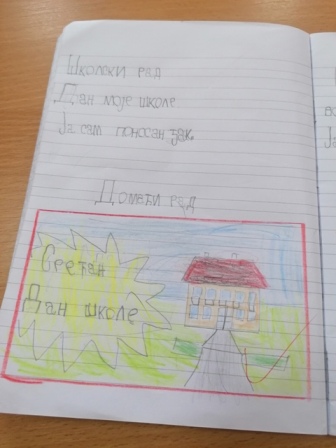 Школски рад
Дан моје школе
Ја сам поносан ђак.
Домаћи рад
Срећан
Дан школе